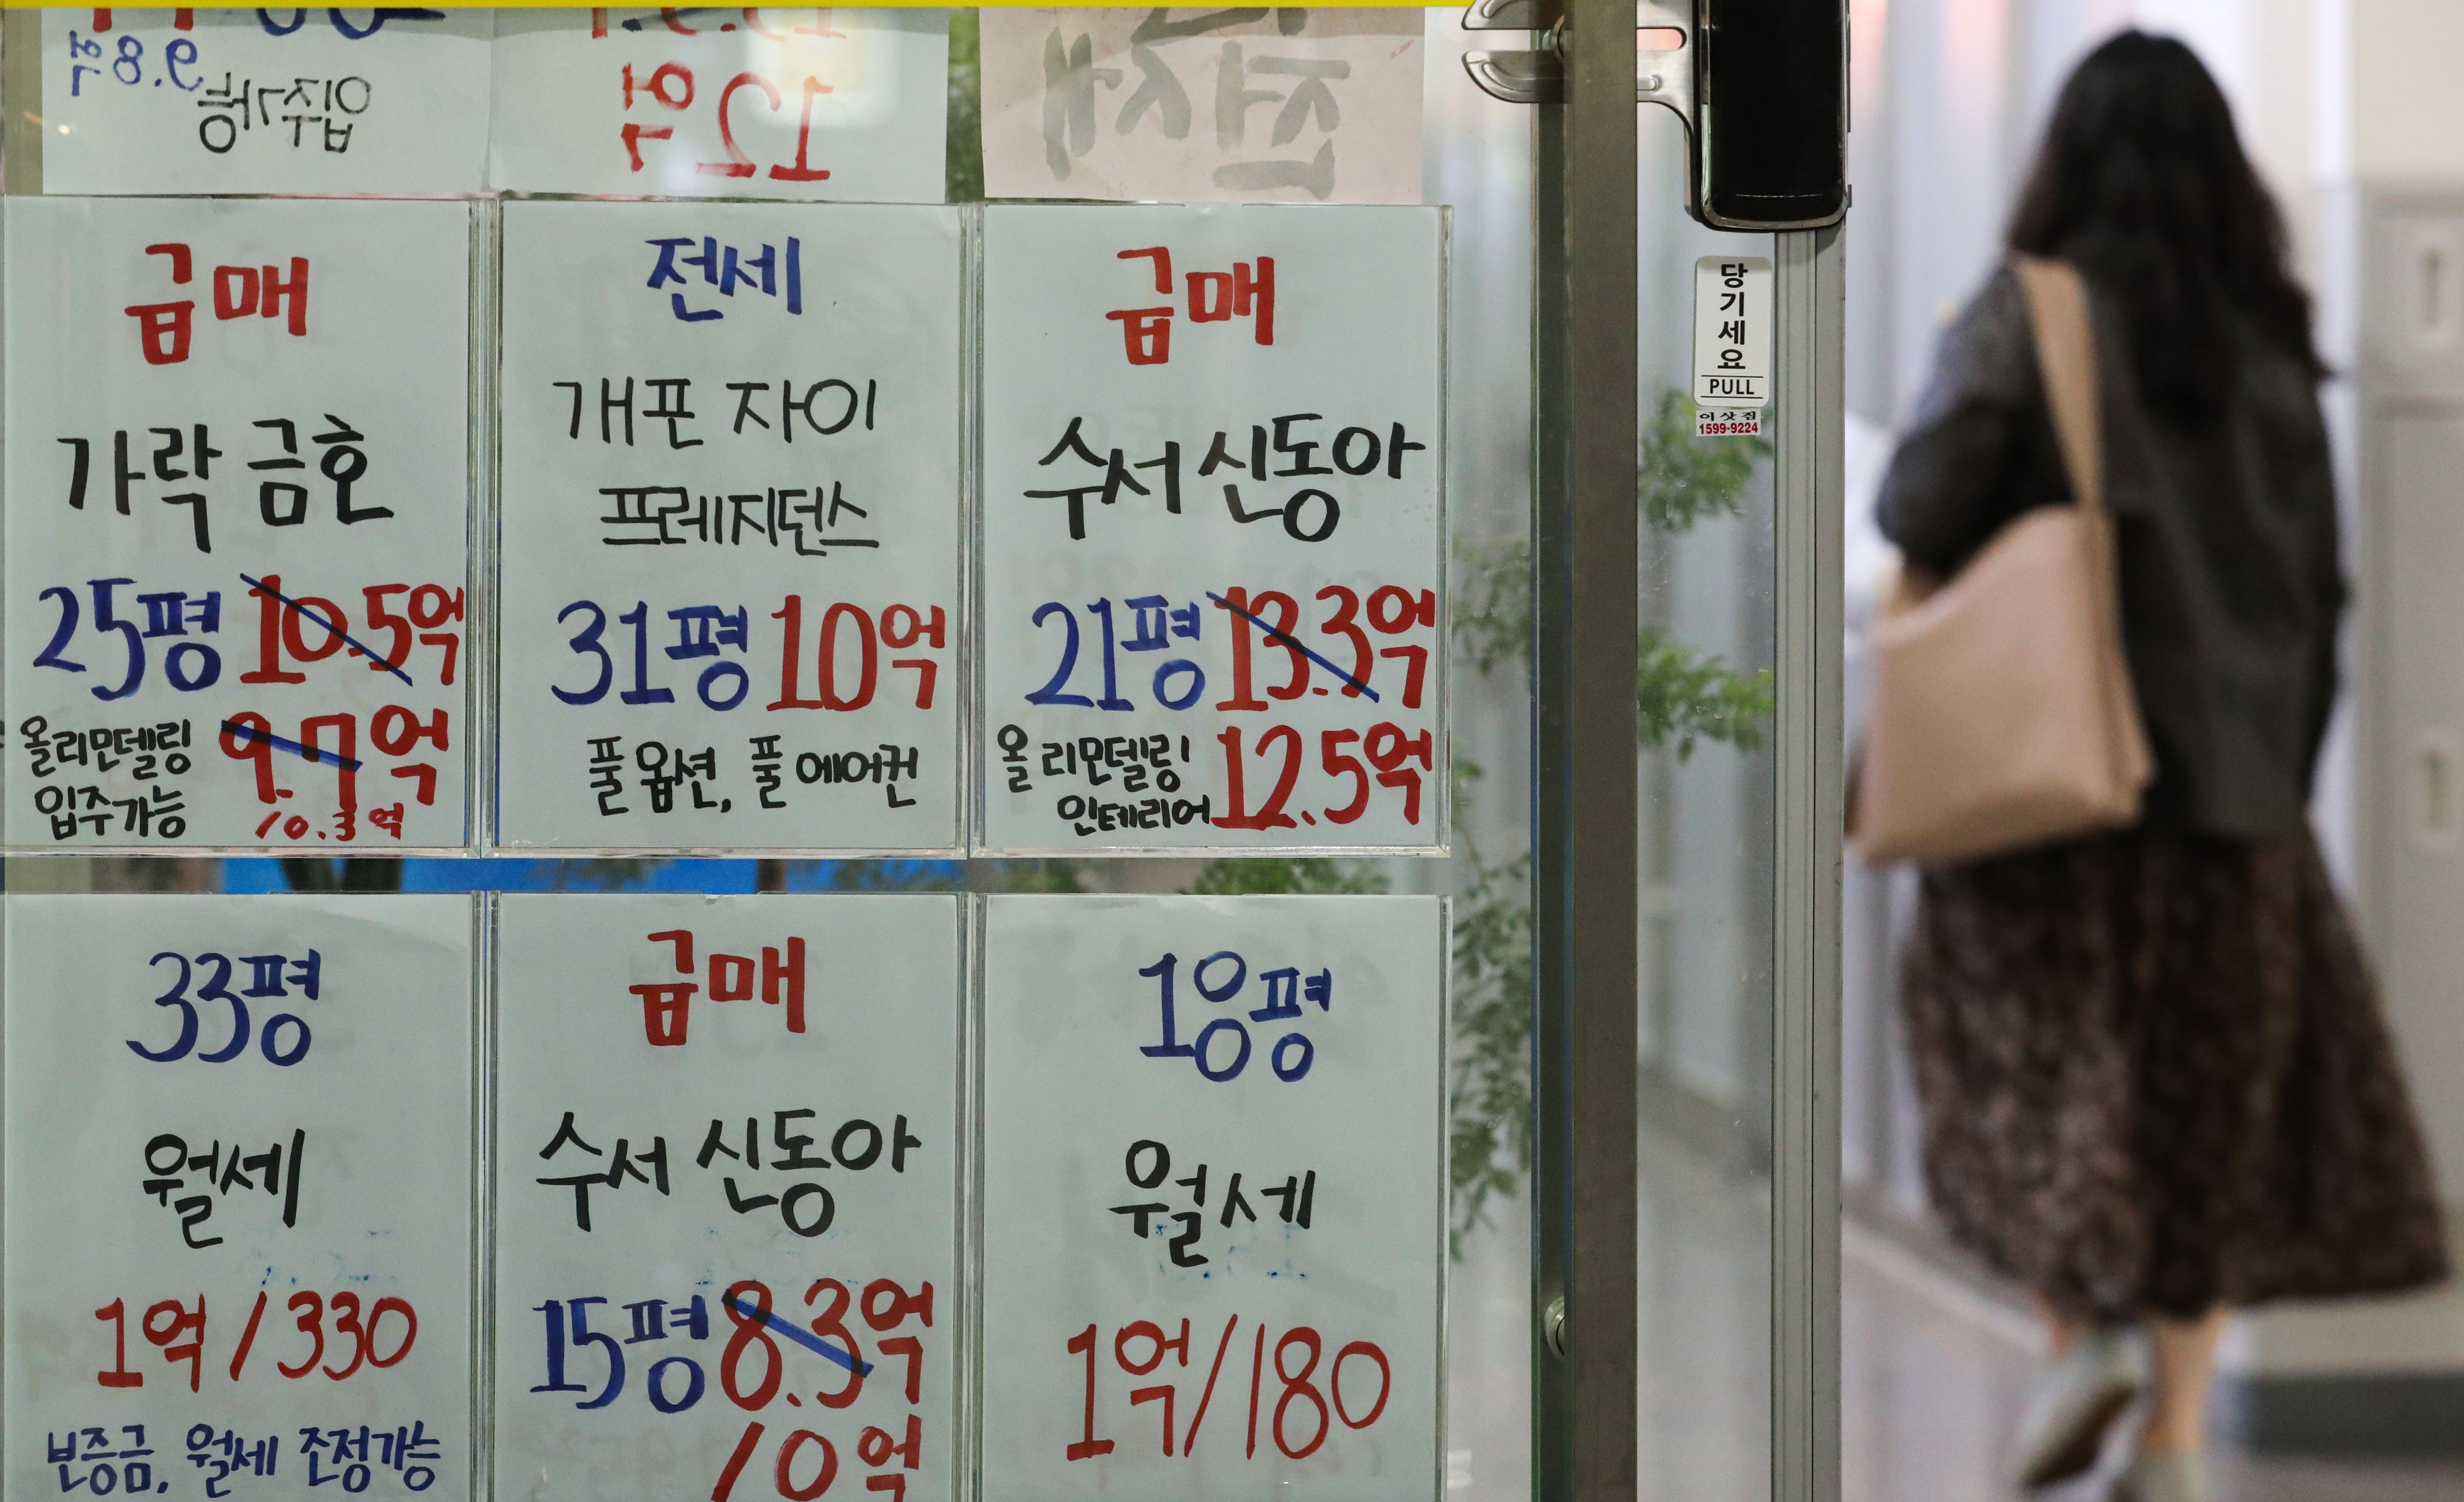 9.8억
입주가능
12억
전세
급매
가락 금호
25평 10.5억
올리모델링 9.7억
입주가능 10.3억
전세
개포 자이
프레지던스
31평 10억
풀 옵션, 풀 에어컨
급매
수서 신동아
21평 13.3억
올 리모델링 12.5억
인테리어
33평
월세
1억/330
보증금, 월세 조정가능
급매
수서 신동아
15평 8.3억
10억
18평
월세
1억/180
당기세요
PULL
이삿짐
1599-9224